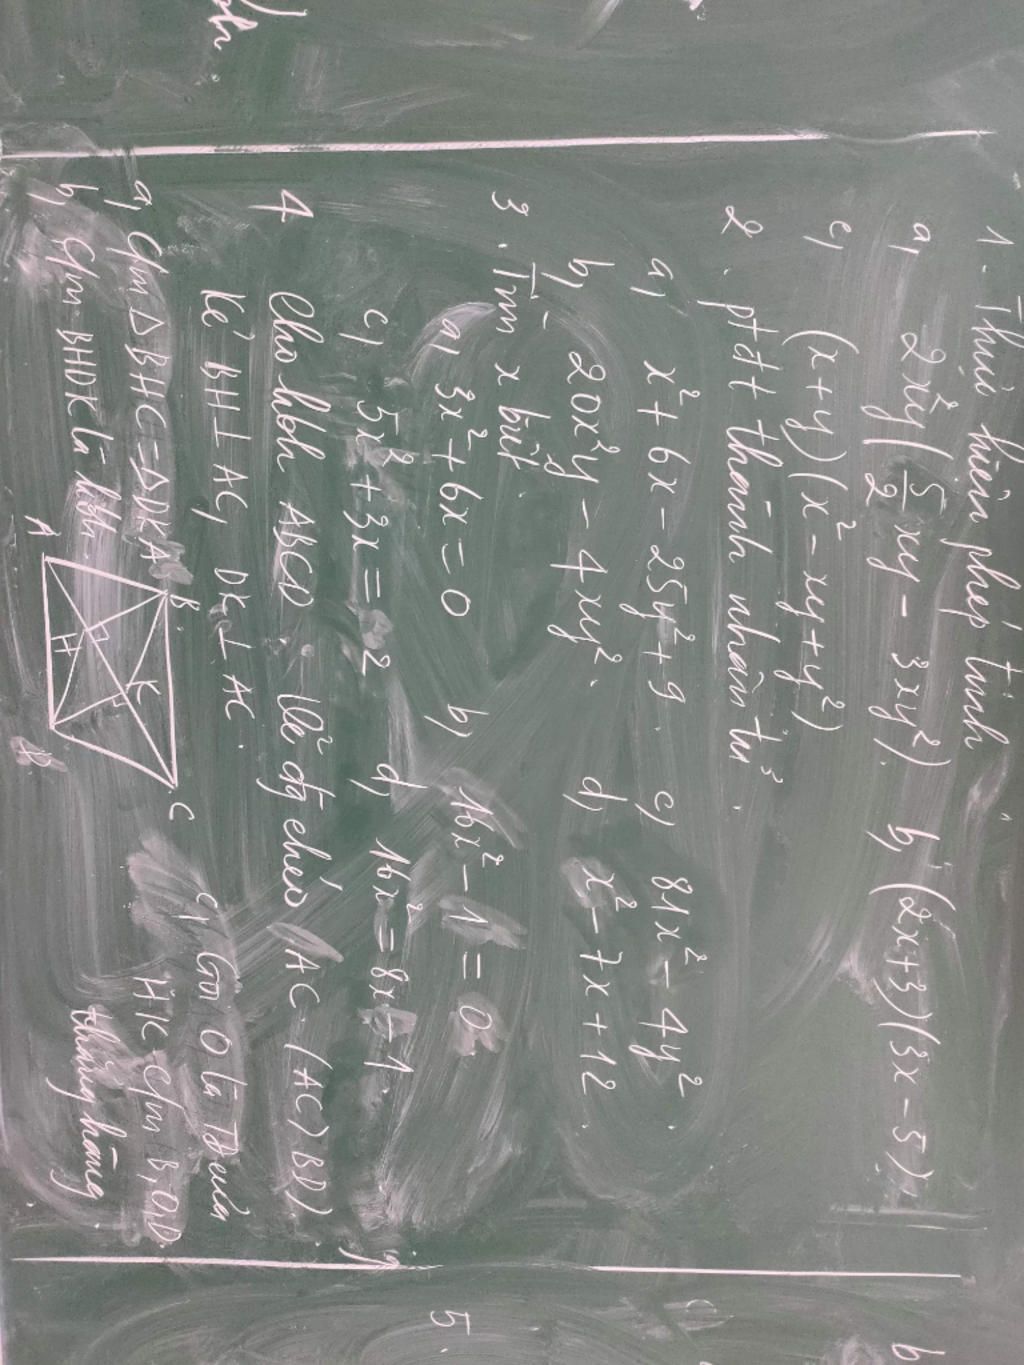 1. Thực hiện phép tính
a, 2x²y(5/2 xy - 3xy²). b, (2x+3)(3x-5)
c, (x+y)(x²-xy+y²)
2. ptđt thành nhân tử.
a, x²+6x-25y²+9. c, 81x²-4y².
b, 20x²y-4xy². d, x²-7x+12.
3. Tìm x biết.
a, 3x²+6x=0 b, 16x²-1=0
c, 5x²+3x= 2 d, 16x²=8x-1.
4 Cho hbh ABCD
đg chéo AC. (AC>BD)
Kẻ BH⊥AC, DK⊥AC.
a, Cm ΔBHC=ΔDKA
b, Cm BHDK là hbh.
c, O là
HK Cm B,O,D
thẳng hàng
A
B
C
D
H
K
5.
b
c